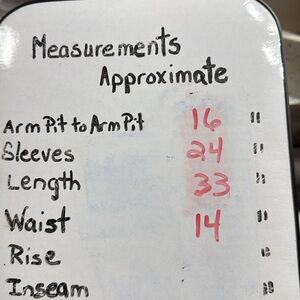 Measurements
Approximate
Arm Pit to Arm Pit 16 "
Sleeves 24 "
Length 33 "
Waist 14 "
Rise "
Inseam "